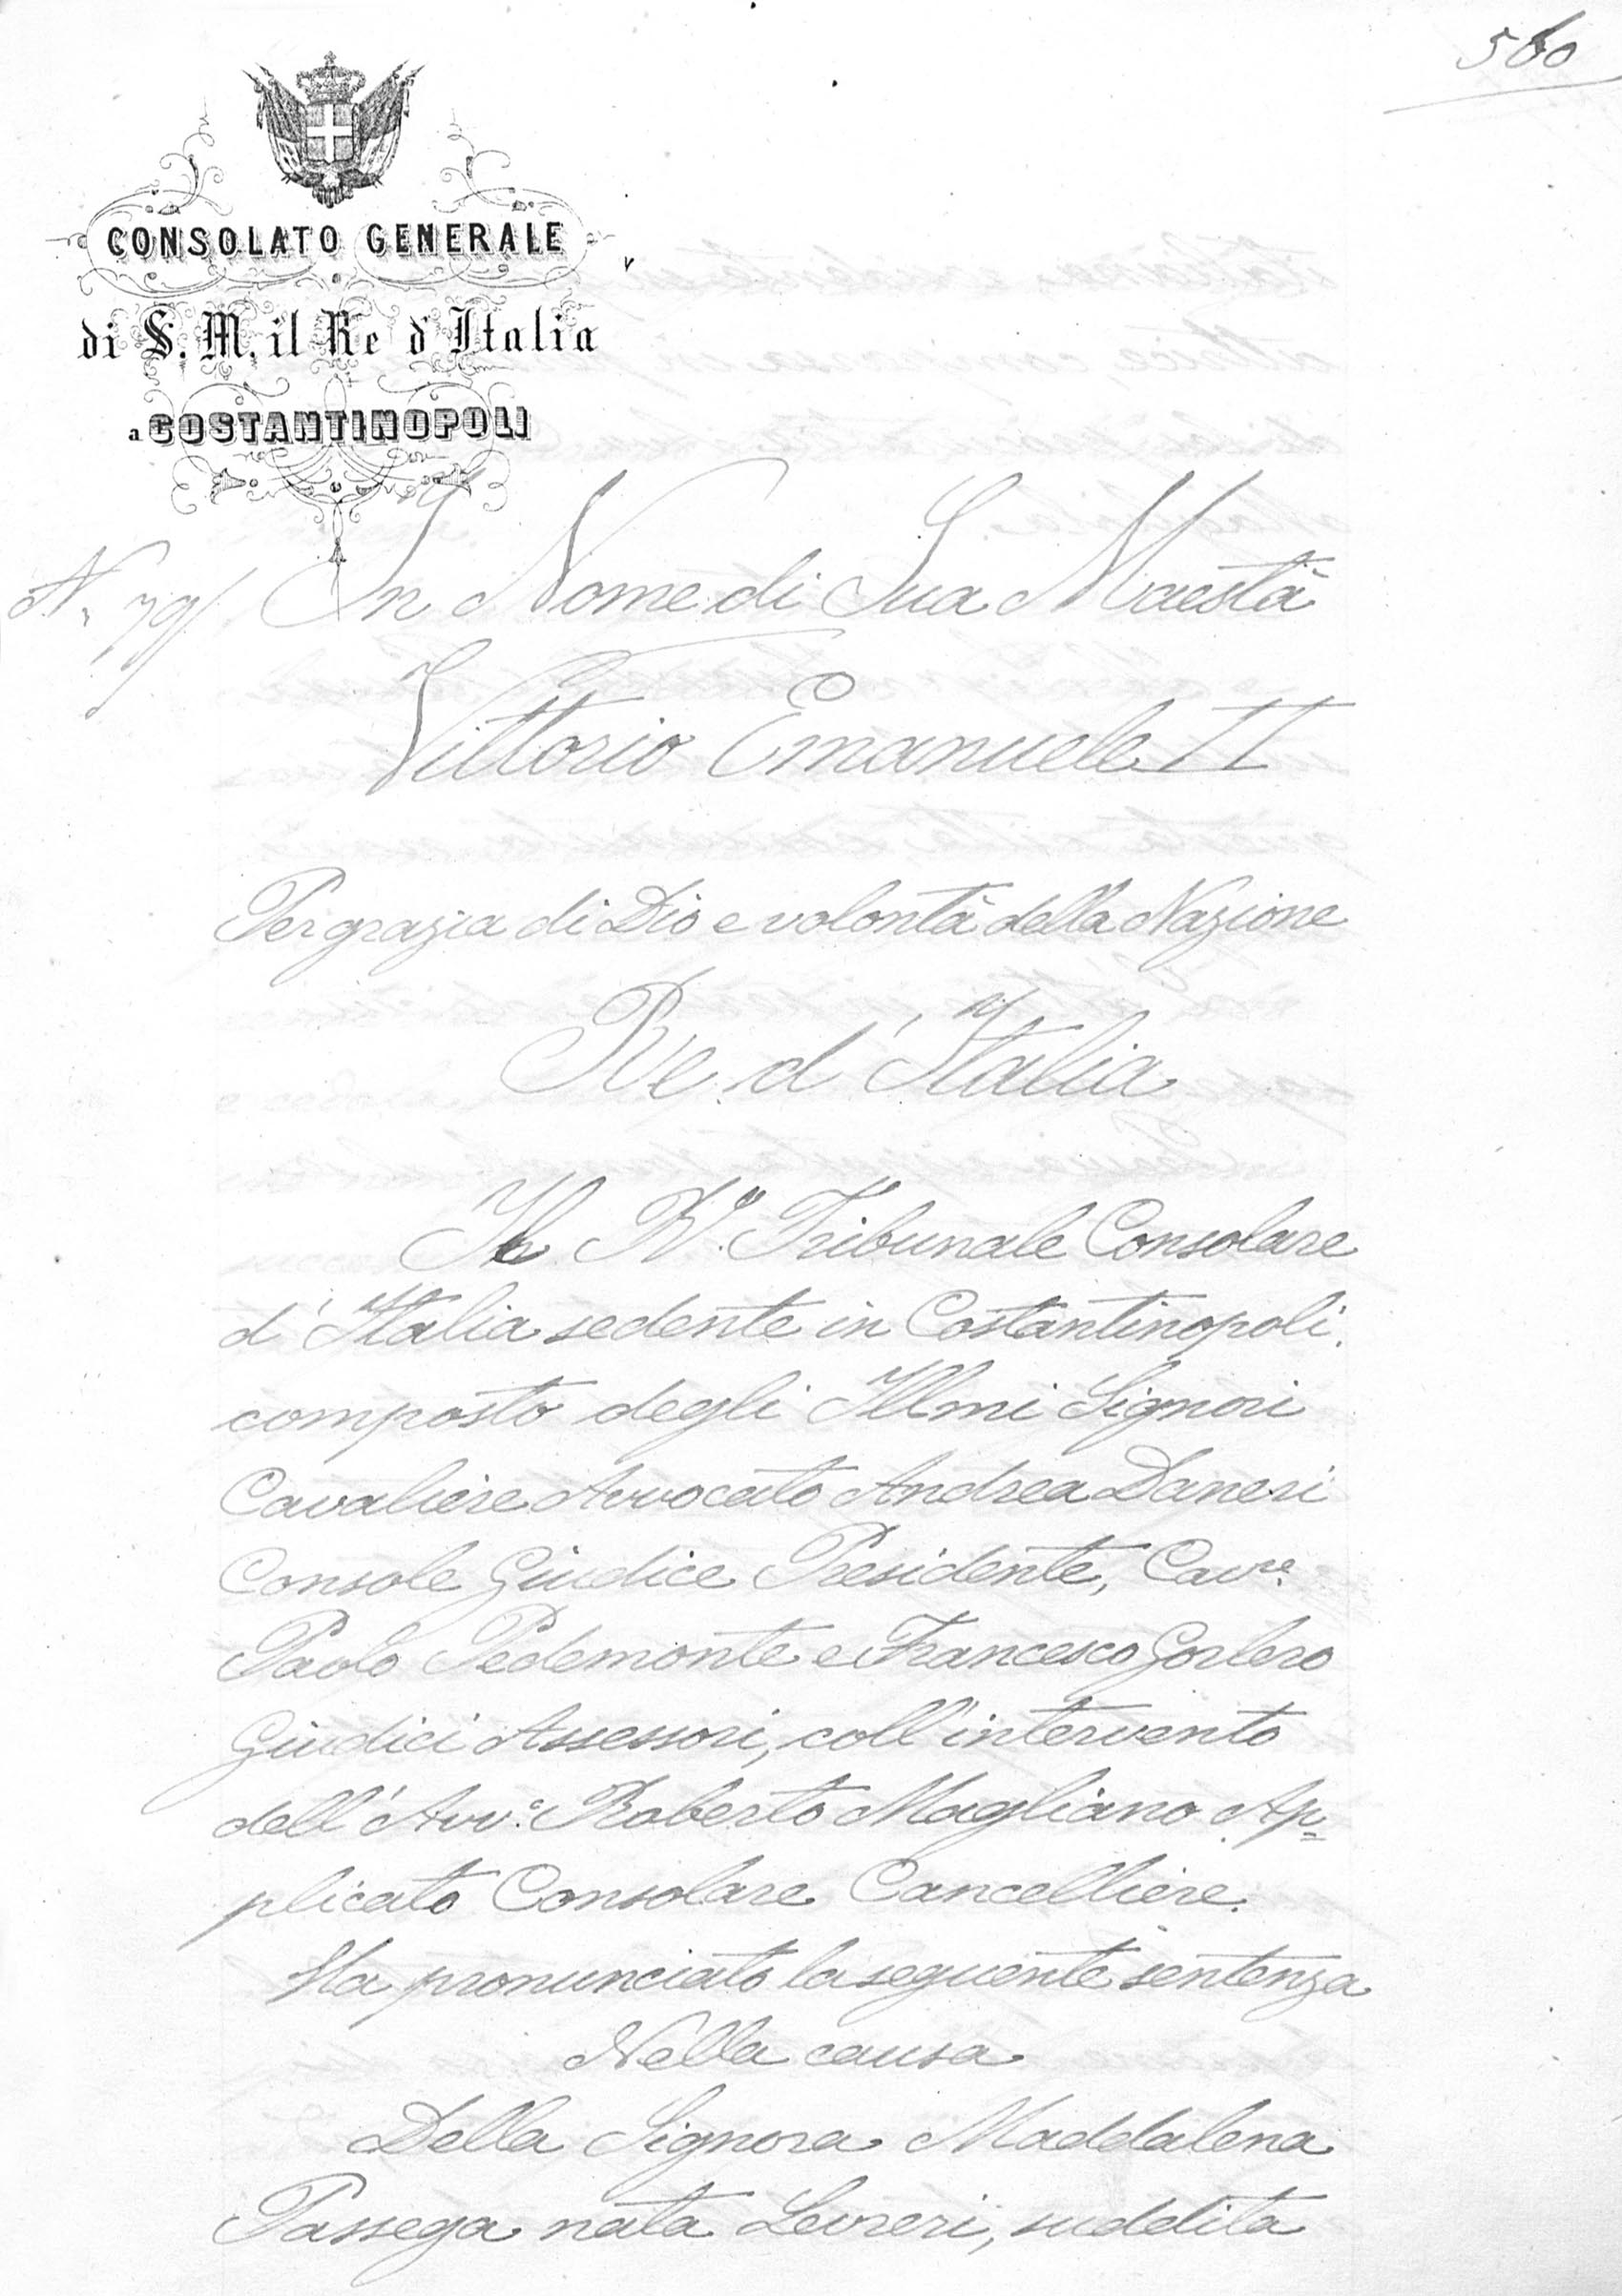 560
CONSOLATO GENERALE
di S. M. il Re d'Italia
a COSTANTINOPOLI
N. 79/ In Nome di Sua Maestà
Vittorio Emanuele II
Per grazia di Dio e volontà della Nazione
Re d'Italia
Il R.º Tribunale Consolare
d'Italia sedente in Costantinopoli.
composto degli Illmi Signori
Cavaliere Avvocato Andrea Daneri
Console Giudice Presidente, Cavre.
Paolo Pedemonte e Francesco Gorlero
Giudici Assessori, coll'intervento
dell'Avv.º Roberto Magliano Ap=
plicato Consolare Cancelliere.
Ha pronunciato la seguente sentenza
Nella causa
Della Signora Maddalena
Passega nata Levreri, suddita